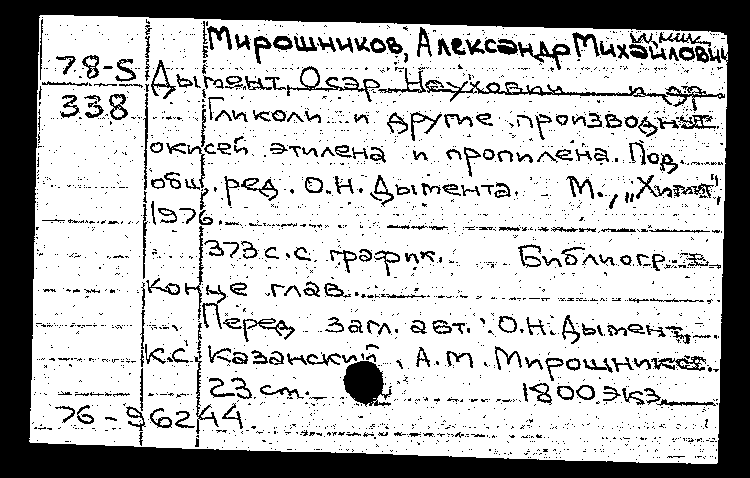 Мирошников, Александр Михайлович
химик
78-S Дымент, Осар Ноухович и др
338 Гликоли и другие производные
окисей этилена и пропилена. Под.
общ. ред. О.Н. Дымента. М., „Химия",
1976.
373 с. с график. Библиогр. в
конце глав.
Перед загл. авт.: О.Н. Дымент,
К.С. Казанский, А.М. Мирошников.
23 см. 1800 экз.
76-96244.